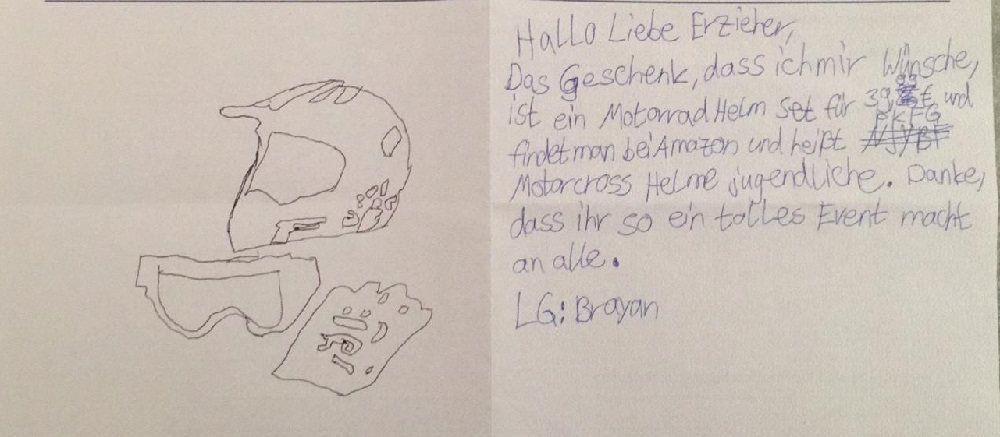 Hallo Liebe Erzieher,
Das Geschenk, dass ich mir Wünsche,
ist ein Motorrad Helm Set für 39,99€ und
findet man bei Amazon und heißt PKFG
Motorcross Helme jugendliche. Danke,
dass ihr so ein tolles Event macht
an alle.
LG: Brayan